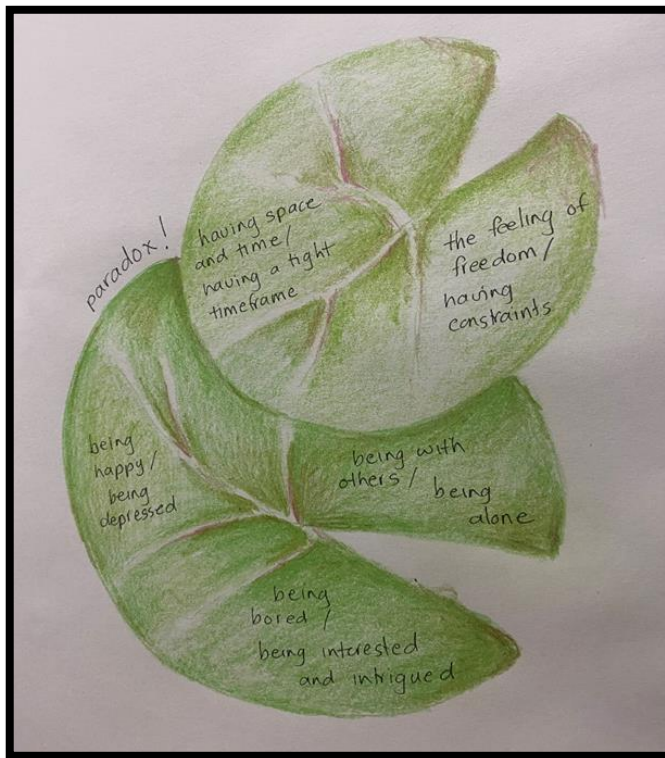 paradox!
having space
and time/
having a tight
timeframe
the feeling of
freedom/
having
constraints
being
happy/
being
depressed
being with
others/ being
alone
being
bored /
being interested
and intrigued